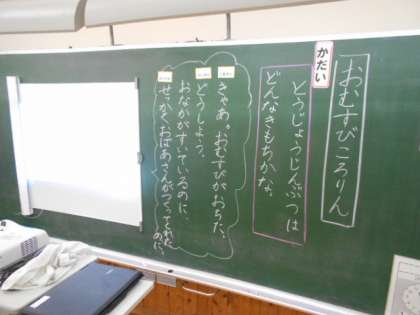 おむすびころりん
かだい
とうじょうじんぶつは
どんなきもちかな。
きゃあ。おむすびがおちた。
どうしよう。
おなかがすいているのに。
せっかくおばあさんがつくってくれたのに。